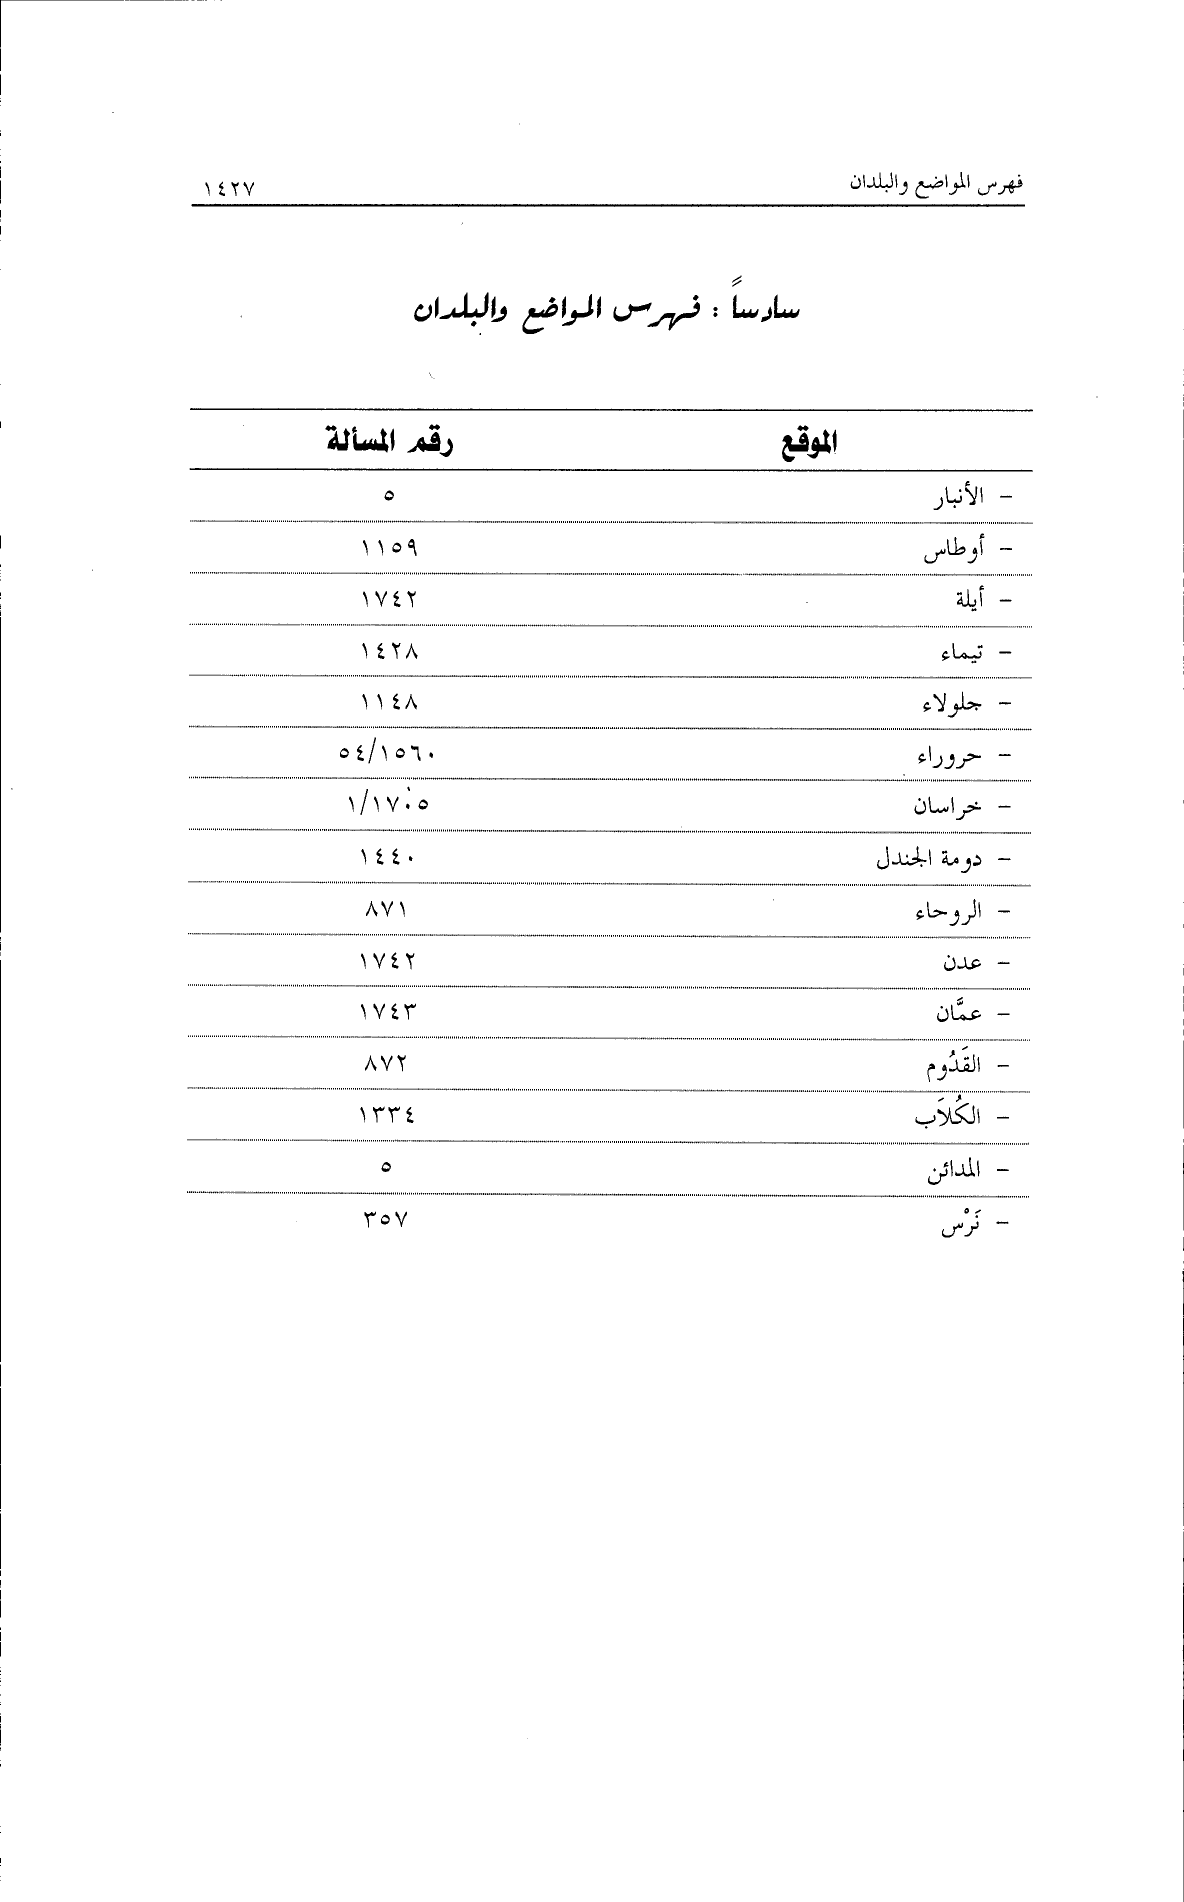 فهرس المواضع والبلدان ١٤٢٧
سادساً : فهرس المواضع والبلدان
الموقع رقم المسألة
- الأنبار ٥
- أوطاس ١١٥٩
- أيلة ١٧٤٢
- تيماء ١٤٢٨
- جلولاء ١١٤٨
- حروراء ٥٤/١٥٦٠
- خراسان ١/١٧٠٥
- دومة الجندل ١٤٤٠
- الروحاء ٨٧١
- عدن ١٧٤٢
- عمَّان ١٧٤٣
- القَدُوم ٨٧٢
- الكُلاَب ١٣٣٤
- المدائن ٥
- نَرْس ٣٥٧